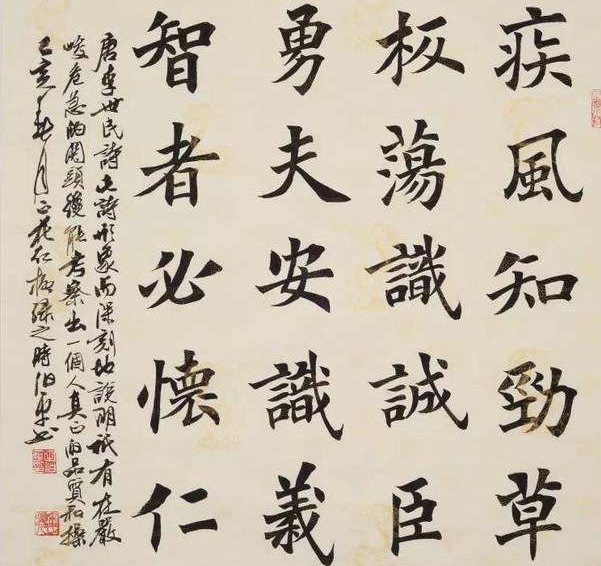 疾風知勁草
板蕩識誠臣
勇夫安識義
智者必懷仁
唐李世民詩此詩形象而深刻地說明祇有在嚴
峻危急的関頭纔能考察出一個人真正的品質和操
己亥春月正花红柳绿之時